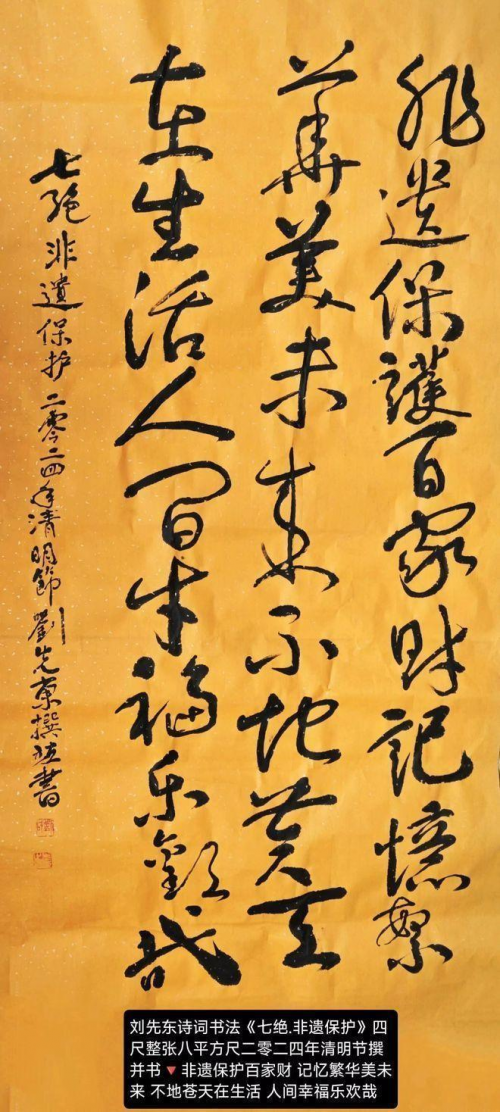 非遗保護百家财記憶繁
華美未来不地苍天
在生活人间幸福乐歡哉
七绝 非遺保护 二零二四年清明節 劉先東撰並書
刘先东诗词书法《七绝.非遗保护》四
尺整张八平方尺二零二四年清明节撰
并书🔻非遗保护百家财 记忆繁华美未
来 不地苍天在生活 人间幸福乐欢哉